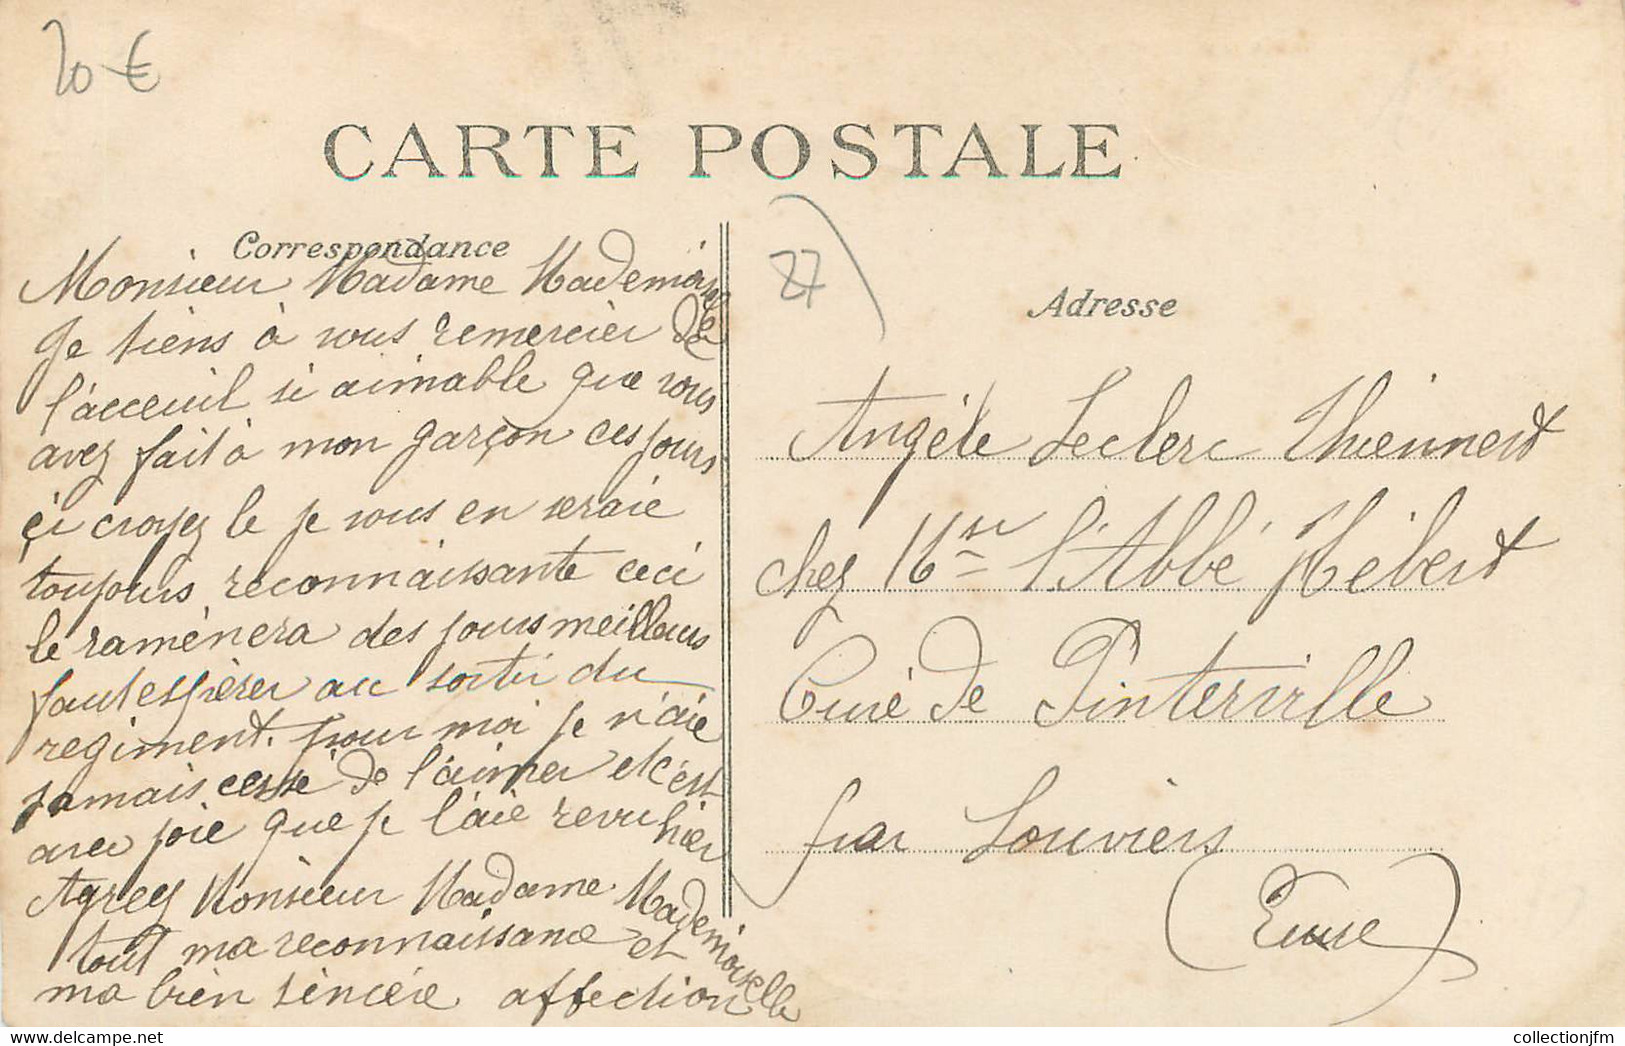 20 €
CARTE POSTALE
Correspondance
Monsieur Madame Mademoiselle
Je tiens à vous remercier de
l'acceuil si aimable que vous
avez fait à mon garçon ces jours
çi croyez le je vous en seraie
toujours reconnaissante ceci
le ramènera des jours meilleurs
faut espèrer au sortir du
regiment. pour moi je n'aie
jamais cessé de l'aimer et c'est
avec joie que je l'aie revu hier
Agreez Monsieur Madame Mademoiselle
tout ma reconnaissance et
ma bien sincère affection
27
Adresse
Angèle Leclerc Thiennert
chez Mr l'Abbé Hébert
Curé de Pinterville
par Louviers
(Eure)
collectionjfm